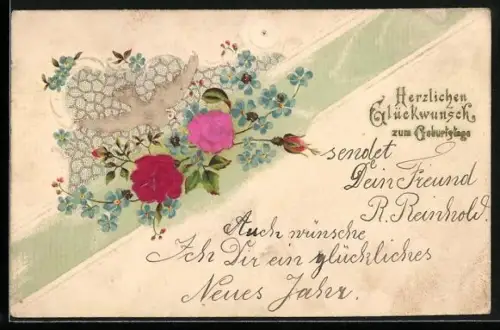 Herzlichen
Glückwunsch
zum Geburtstage
sendet
Dein Freund
R. Reinhold.
Auch wünsche
Ich Dir ein glückliches
Neues Jahr.